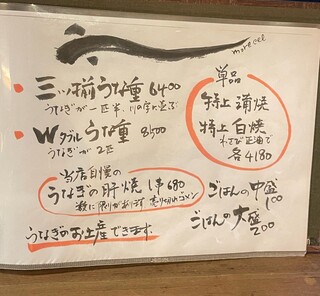 三ツ揃うな重 6400
うなぎが一匹半、川の字に並ぶ
Wダブルうな重 8500
うなぎが2匹
当店自慢の
うなぎの肝焼 1串680
数に限りがあります 売り切れゴメン
うなぎのお土産できます。
単品
特上 蒲焼
特上 白焼
わさび正油で
各4180
ごはんの中盛
100
ごはんの大盛
200